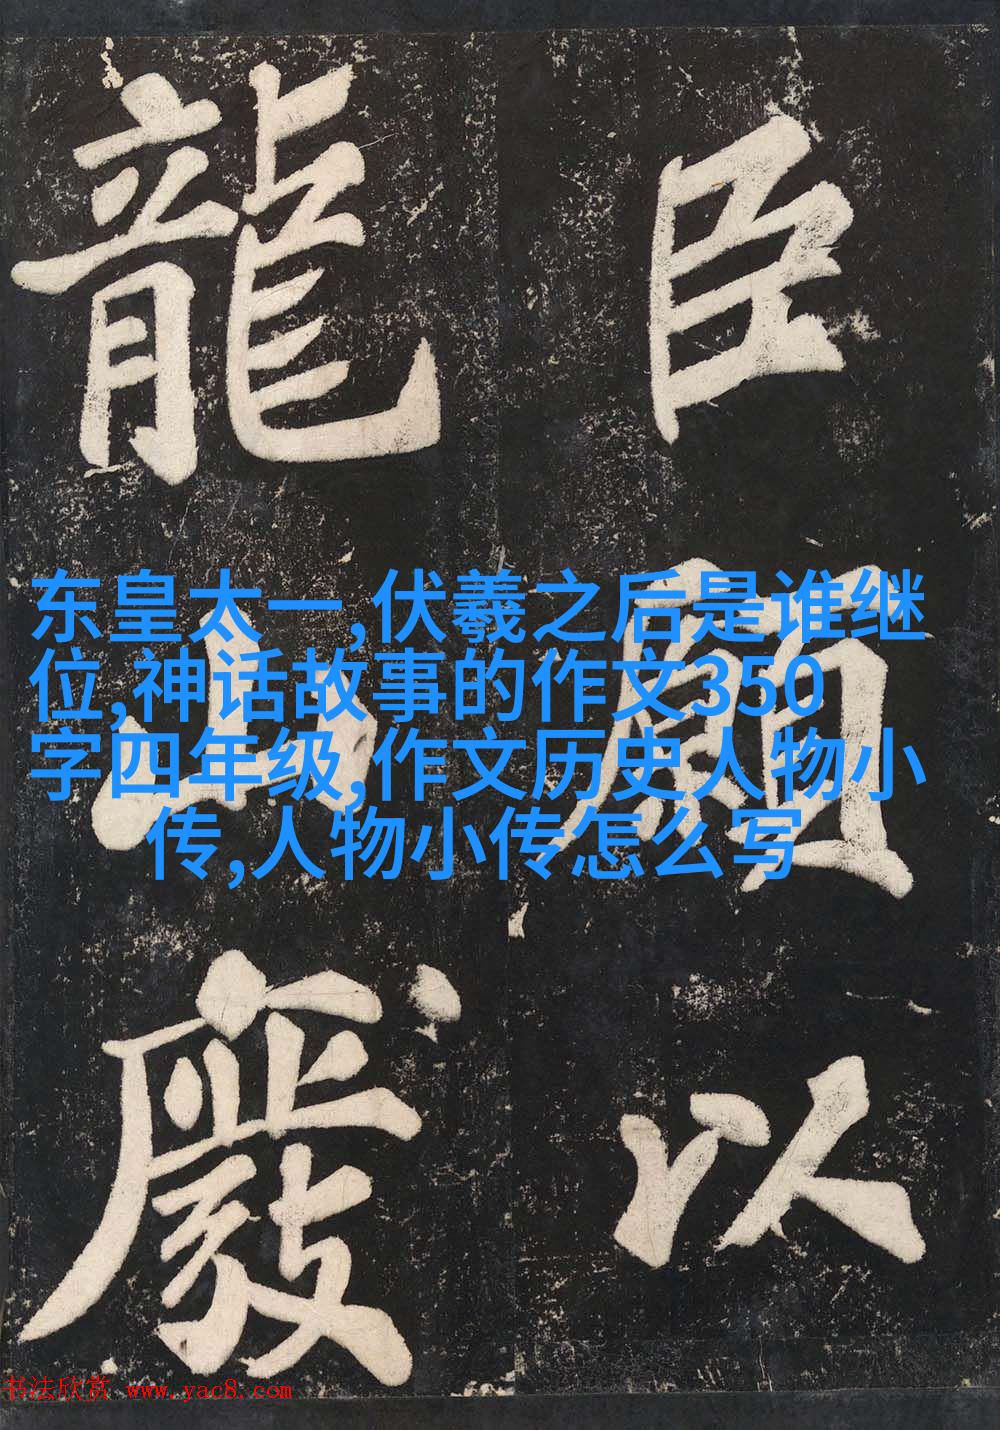 臣
願
以
龍
山
东皇太一,伏羲之后是谁继
位,神话故事的作文350
字四年级,作文历史人物小
传,人物小传怎么写
书法欣赏 www.yac8.com